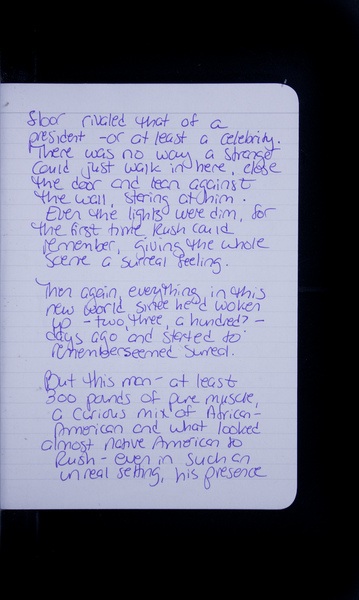 floor rivaled that of a
president - or at least a celebrity.
There was no way a stranger
could just walk in here, close
the door and lean against
the wall, staring at him.
Even the lights were dim, for
the first time Rush could
remember, giving the whole
scene a surreal feeling.
Then again, everything in this
new world since he'd woken
up - two, three, a hundred? -
days ago and started to
remember seemed surreal.
But this man - at least
300 pounds of pure muscle,
a curious mix of African-
American and what looked
almost native American to
Rush - even in such an
unreal setting, his presence